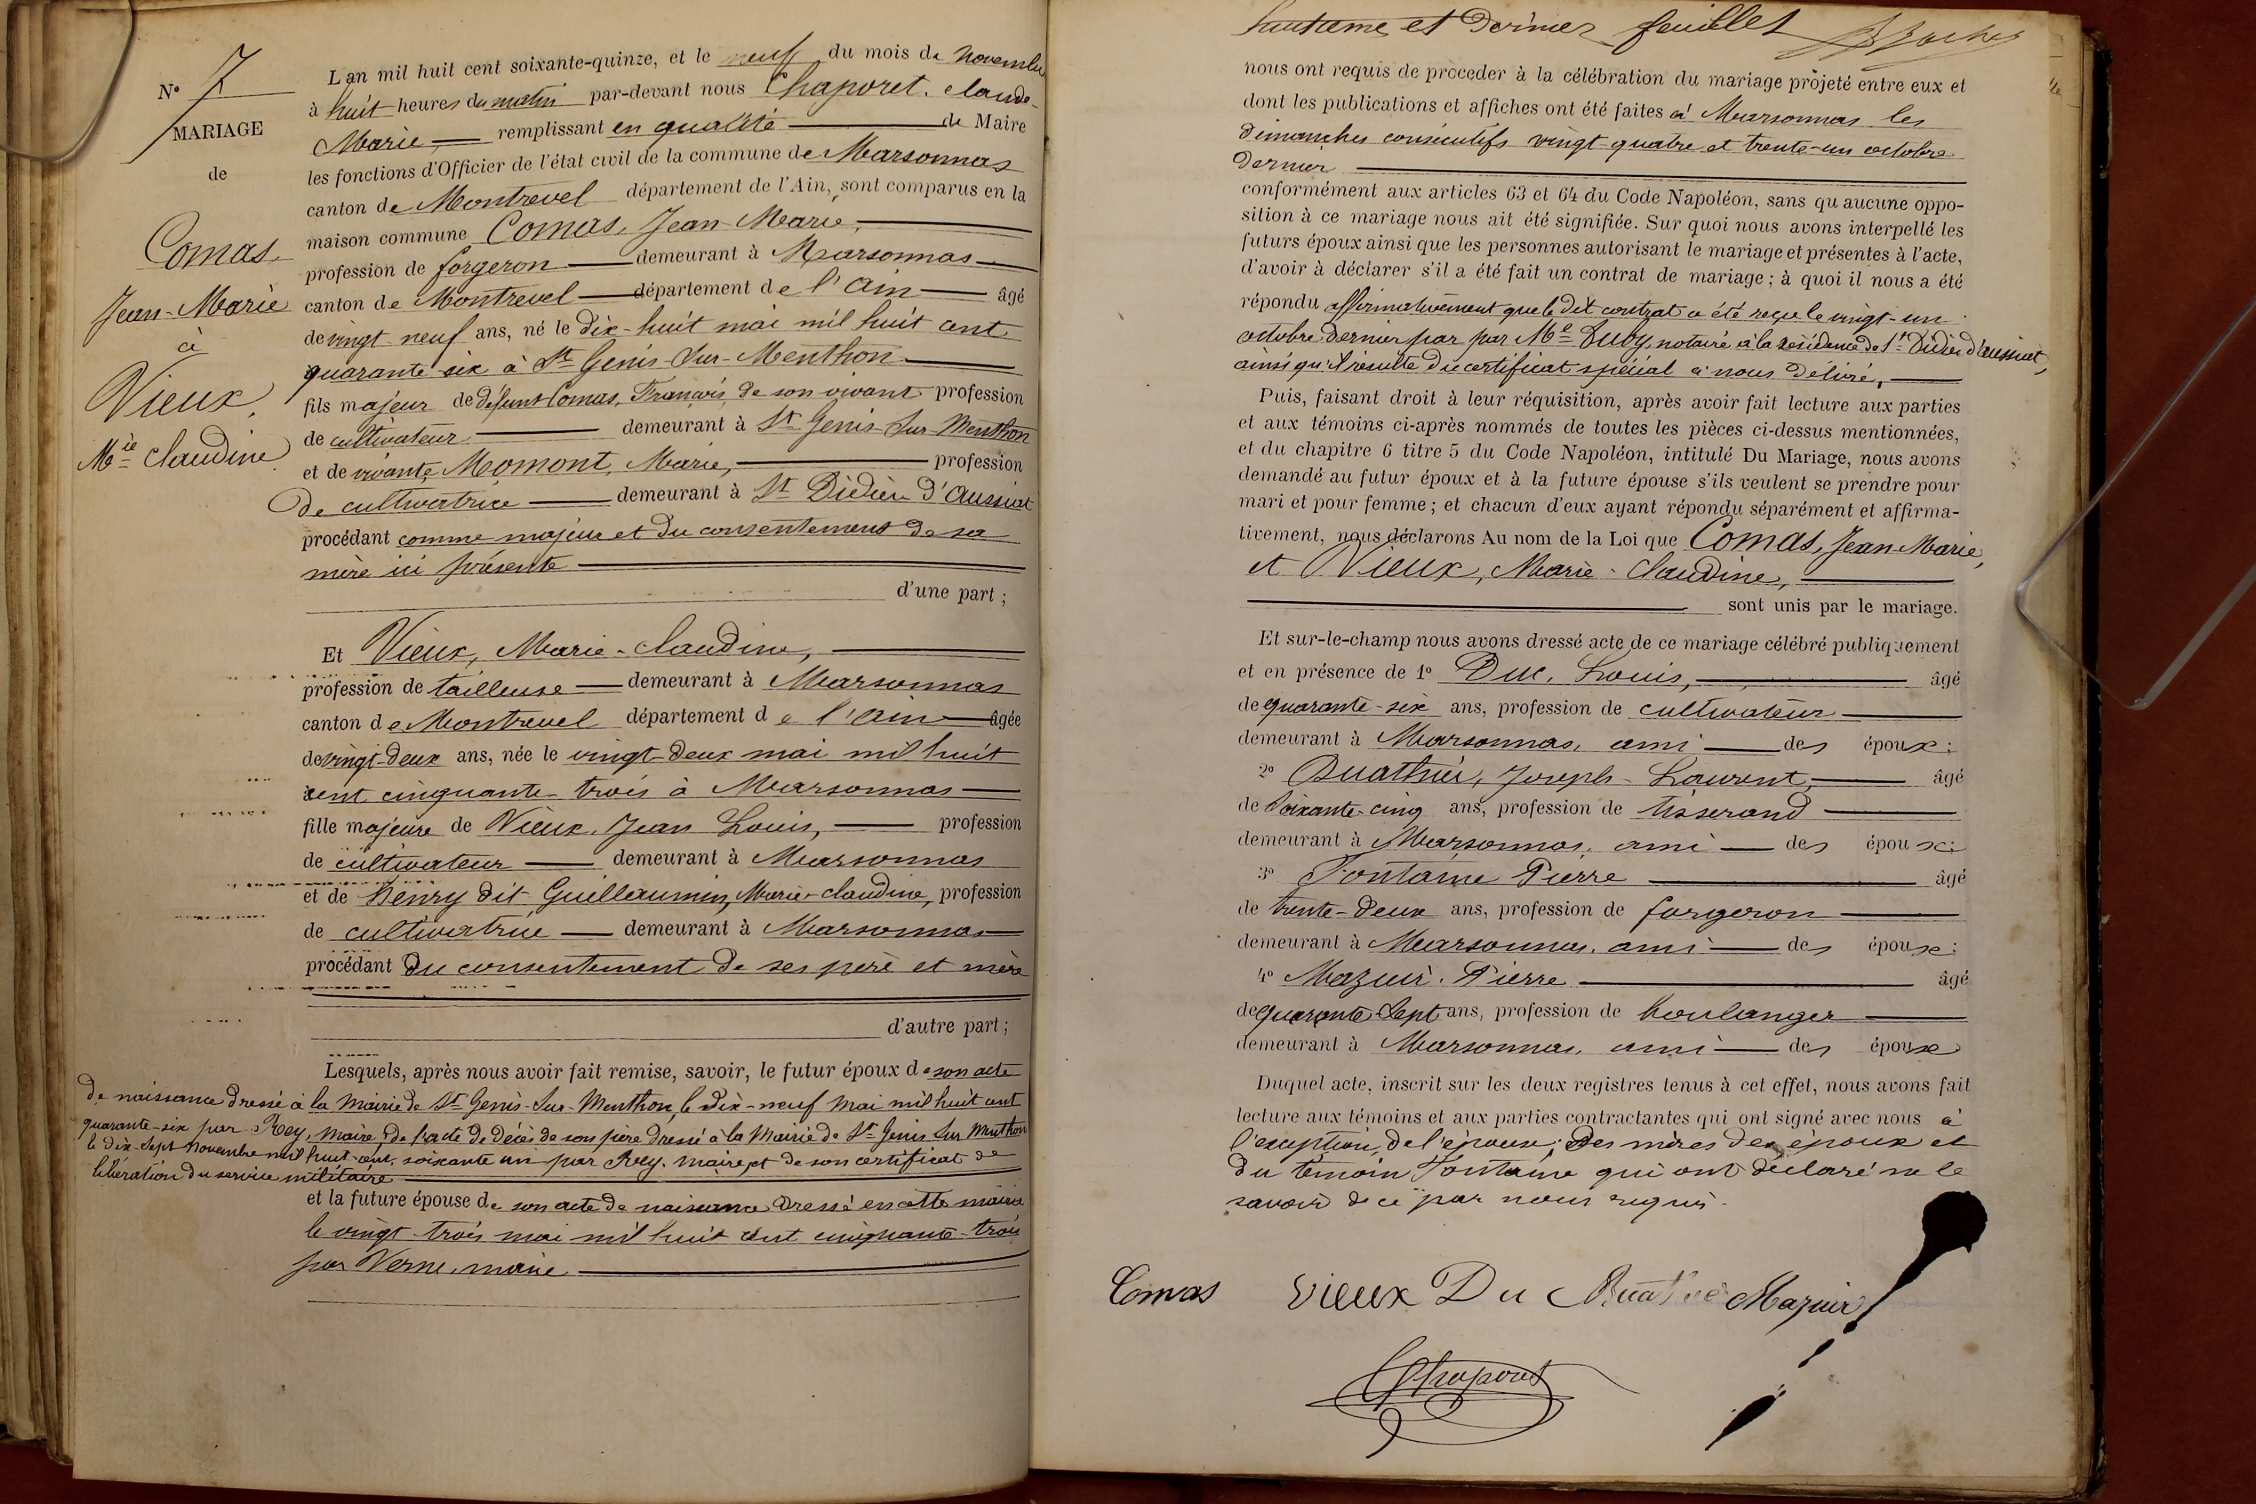 N° 7
MARIAGE
de
Comas
Jean-Marie
à
Vieux,
Mie Claudine
L'an mil huit cent soixante-quinze, et le neuf du mois de novembre
à huit heures du matin par-devant nous Chaporet, Claude-
Marie, remplissant en qualité de Maire
les fonctions d'Officier de l'état civil de la commune de Marsonnas
canton de Montrevel département de l'Ain, sont comparus en la
maison commune Comas, Jean-Marie,
profession de forgeron demeurant à Marsonnas
canton de Montrevel département de l'Ain âgé
de vingt neuf ans, né le dix-huit mai mil huit cent
quarante six à St Genis-Sur-Menthon
fils majeur de défunt Comas, Français, de son vivant profession
de cultivateur demeurant à St Genis-Sur-Menthon
et de vivante Momont, Marie, profession
de cultivatrice demeurant à St Didier d'Aussiat
procédant comme majeur et du consentement de sa
mère ici présente
d'une part ;
Et Vieux, Marie-Claudine,
profession de tailleuse demeurant à Marsonnas
canton de Montrevel département de l'Ain âgée
de vingt-deux ans, née le vingt-deux mai mil huit
cent cinquante-trois à Marsonnas
fille majeure de Vieux, Jean Louis, profession
de cultivateur demeurant à Marsonnas
et de Henry dit Guillaumin, Marie-Claudine, profession
de cultivatrice demeurant à Marsonnas
procédant du consentement de ses père et mère
d'autre part ;
Lesquels, après nous avoir fait remise, savoir, le futur époux de son acte
de naissance dressé à la Mairie de St Genis-Sur-Menthon, le dix-neuf mai mil huit cent
quarante-six par Rey, maire, de l'acte de décès de son père dressé à la Mairie de St Genis Sur Menthon
le dix-sept novembre mil huit cent soixante un par Rey, maire, et de son certificat de
libération du service militaire
et la future épouse de son acte de naissance dressé en cette mairie
le vingt-trois mai mil huit cent cinquante-trois
par Verne, maire
huitième et dernier feuillet
nous ont requis de procéder à la célébration du mariage projeté entre eux et
dont les publications et affiches ont été faites à Marsonnas les
dimanches consécutifs vingt-quatre et trente-un octobre
dernier
conformément aux articles 63 et 64 du Code Napoléon, sans qu'aucune oppo-
sition à ce mariage nous ait été signifiée. Sur quoi nous avons interpellé les
futurs époux ainsi que les personnes autorisant le mariage et présentes à l'acte,
d'avoir à déclarer s'il a été fait un contrat de mariage ; à quoi il nous a été
répondu affirmativement que le dit contrat a été reçu le vingt-un
octobre dernier par par Me Duby, notaire à la résidence de St Didier d'Aussiat,
ainsi qu'il résulte du certificat spécial à nous délivré,
Puis, faisant droit à leur réquisition, après avoir fait lecture aux parties
et aux témoins ci-après nommés de toutes les pièces ci-dessus mentionnées,
et du chapitre 6 titre 5 du Code Napoléon, intitulé Du Mariage, nous avons
demandé au futur époux et à la future épouse s'ils veulent se prendre pour
mari et pour femme ; et chacun d'eux ayant répondu séparément et affirma-
tivement, nous déclarons Au nom de la Loi que Comas, Jean-Marie,
et Vieux, Marie-Claudine,
sont unis par le mariage.
Et sur-le-champ nous avons dressé acte de ce mariage célébré publiquement
et en présence de 1° Duc, Louis, âgé
de quarante-six ans, profession de cultivateur
demeurant à Marsonnas, ami des époux ;
2° Buathier, Joseph-Laurent, âgé
de soixante-cinq ans, profession de tisserand
demeurant à Marsonnas, ami des époux ;
3° Fontaine Pierre âgé
de trente-deux ans, profession de forgeron
demeurant à Marsonnas, ami des époux ;
4° Mazuir, Pierre âgé
de quarante Sept ans, profession de boulanger
demeurant à Marsonnas, ami des époux
Duquel acte, inscrit sur les deux registres tenus à cet effet, nous avons fait
lecture aux témoins et aux parties contractantes qui ont signé avec nous à
l'exception, de l'épouse, des mères des époux et
du témoin Fontaine qui ont déclaré ne le
savoir de ce par nous requis.
Comas Vieux Du Buathie Mazuir
Chaporet